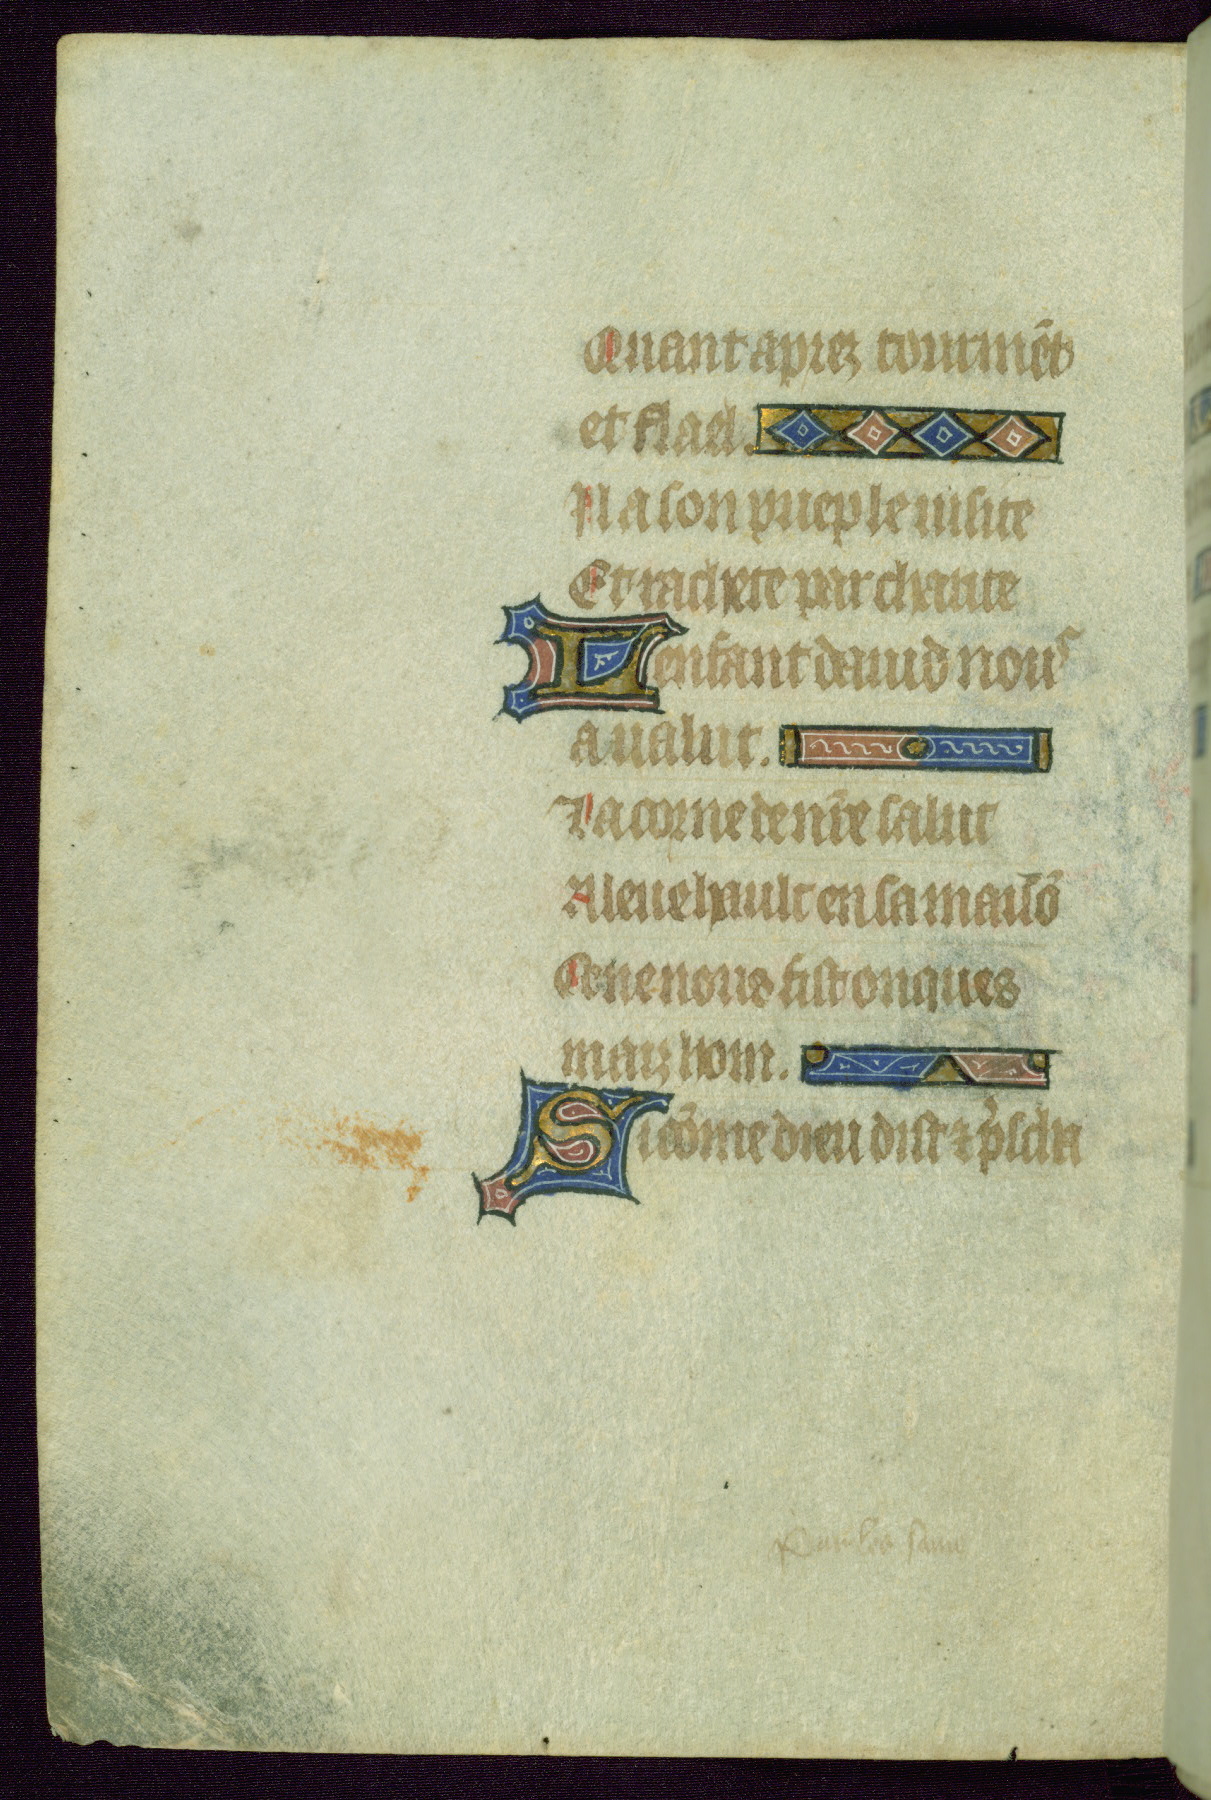 Quant aprez tourmēt
et flael.
Il a son pueple uisite
Et rachete par charite
Lenfant dauid nous
a ualut.
La corne de nr̄e salut
A leue hault en sa maisō
Que nous fist onques
maiz hom.
Si cōme dieu dist ⁊